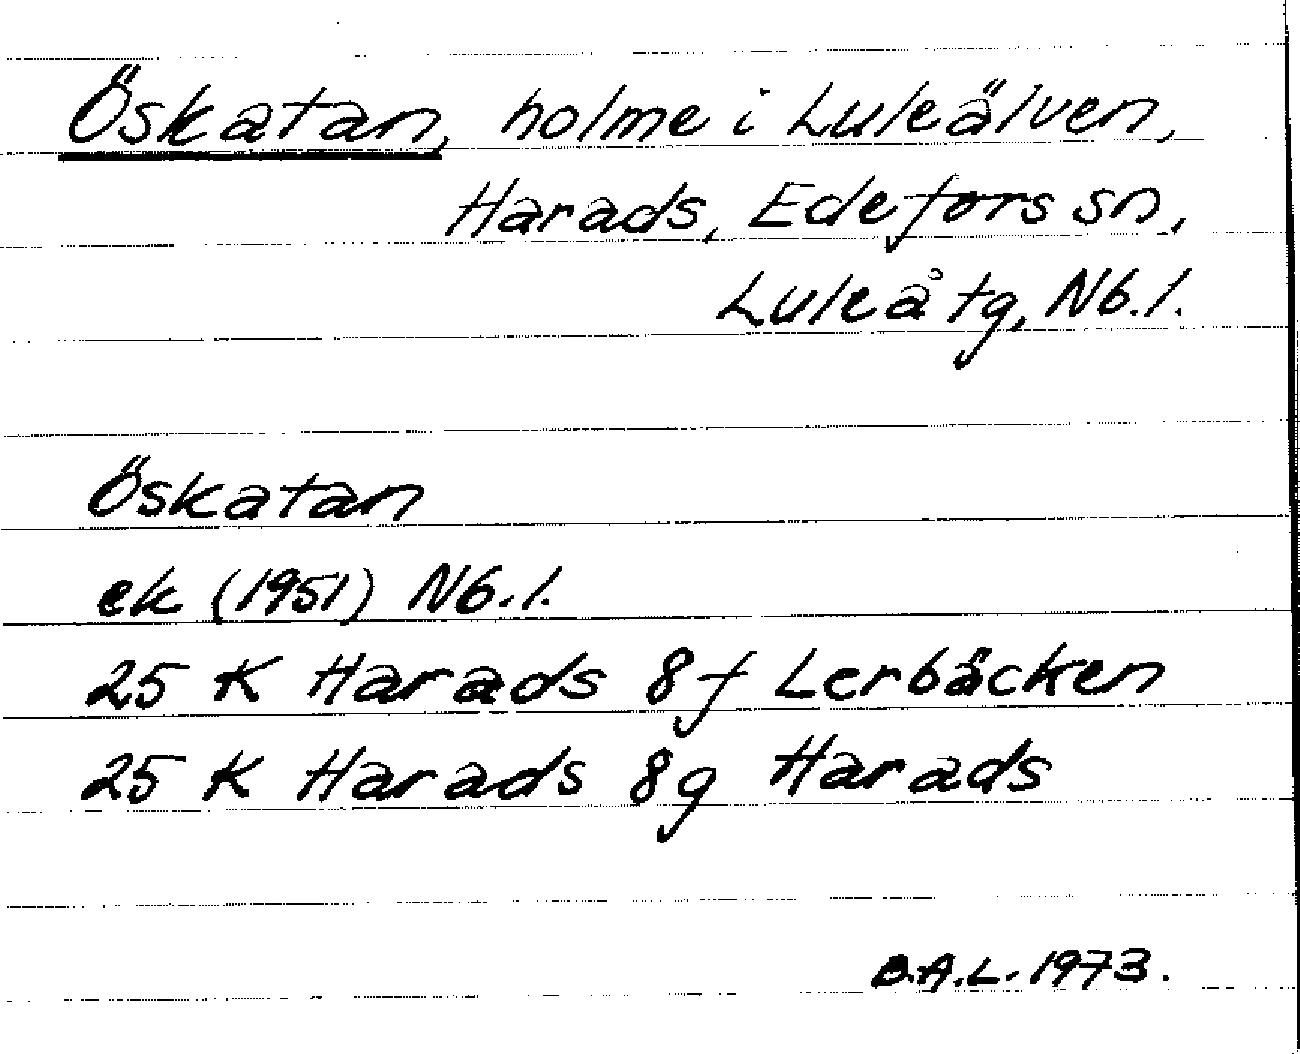 Öskatan, holme i Luleälven,
Harads, Edefors sn,
Luleå tg, Nb.l.
Öskatan
ek (1951) Nb.l.
25 K Harads 8f Lerbäcken
25 K Harads 8g Harads
B.A.L. 1973.